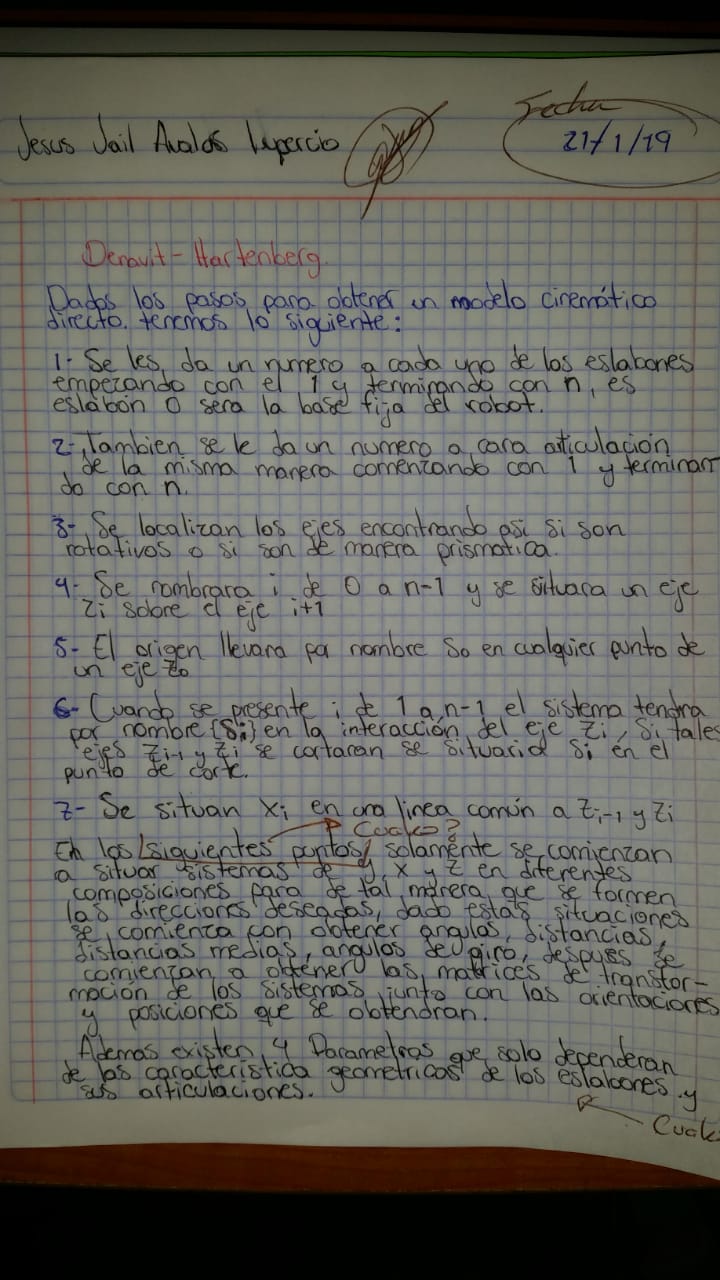 Jesus Jail Avalos Lupercio
Fecha
21/1/19
Denavit-Hartenberg.
Dados los pasos para obtener un modelo cinemático
directo. tenemos lo siguiente:
1- Se les da un numero a cada uno de los eslabones
empezando con el 1 y terminando con n, es
eslabón 0 sera la base fija del robot.
2- Tambien se le da un numero a cara articulación
de la misma manera comenzando con 1 y terminan
do con n.
3- Se localizan los ejes encontrando asi si son
rotativos o si son de manera prismatica.
4- Se nombrara i de 0 a n-1 y se situara un eje
Zi sobre el eje i+1
5- El origen llevara por nombre So en cualquier punto de
un eje Zo
6- Cuando se presente i de 1 a n-1 el sistema tendra
por nombre {Si} en la interacción del eje Zi, Si tales
ejes Zi-1 y Zi se cortaran se situaria Si en el
punto de corte.
7- Se situan Xi en una linea común a Zi-1 y Zi
Cuales?
En los siguientes puntos solamente se comienzan
a situar sistemas de y, x y z en diferentes
composiciones para de tal manera que se formen
las direcciones deseadas, dado estas situaciones
se comienza con obtener angulos, distancias,
distancias medias, angulos de giro, despues se
comienzan a obtener las matrices de transfor-
mación de los sistemas junto con las orientaciones
y posiciones que se obtendran.
Ademas existen 4 Parametros que solo dependeran
de las caracteristica geometricas de los eslabones y
sus articulaciones.